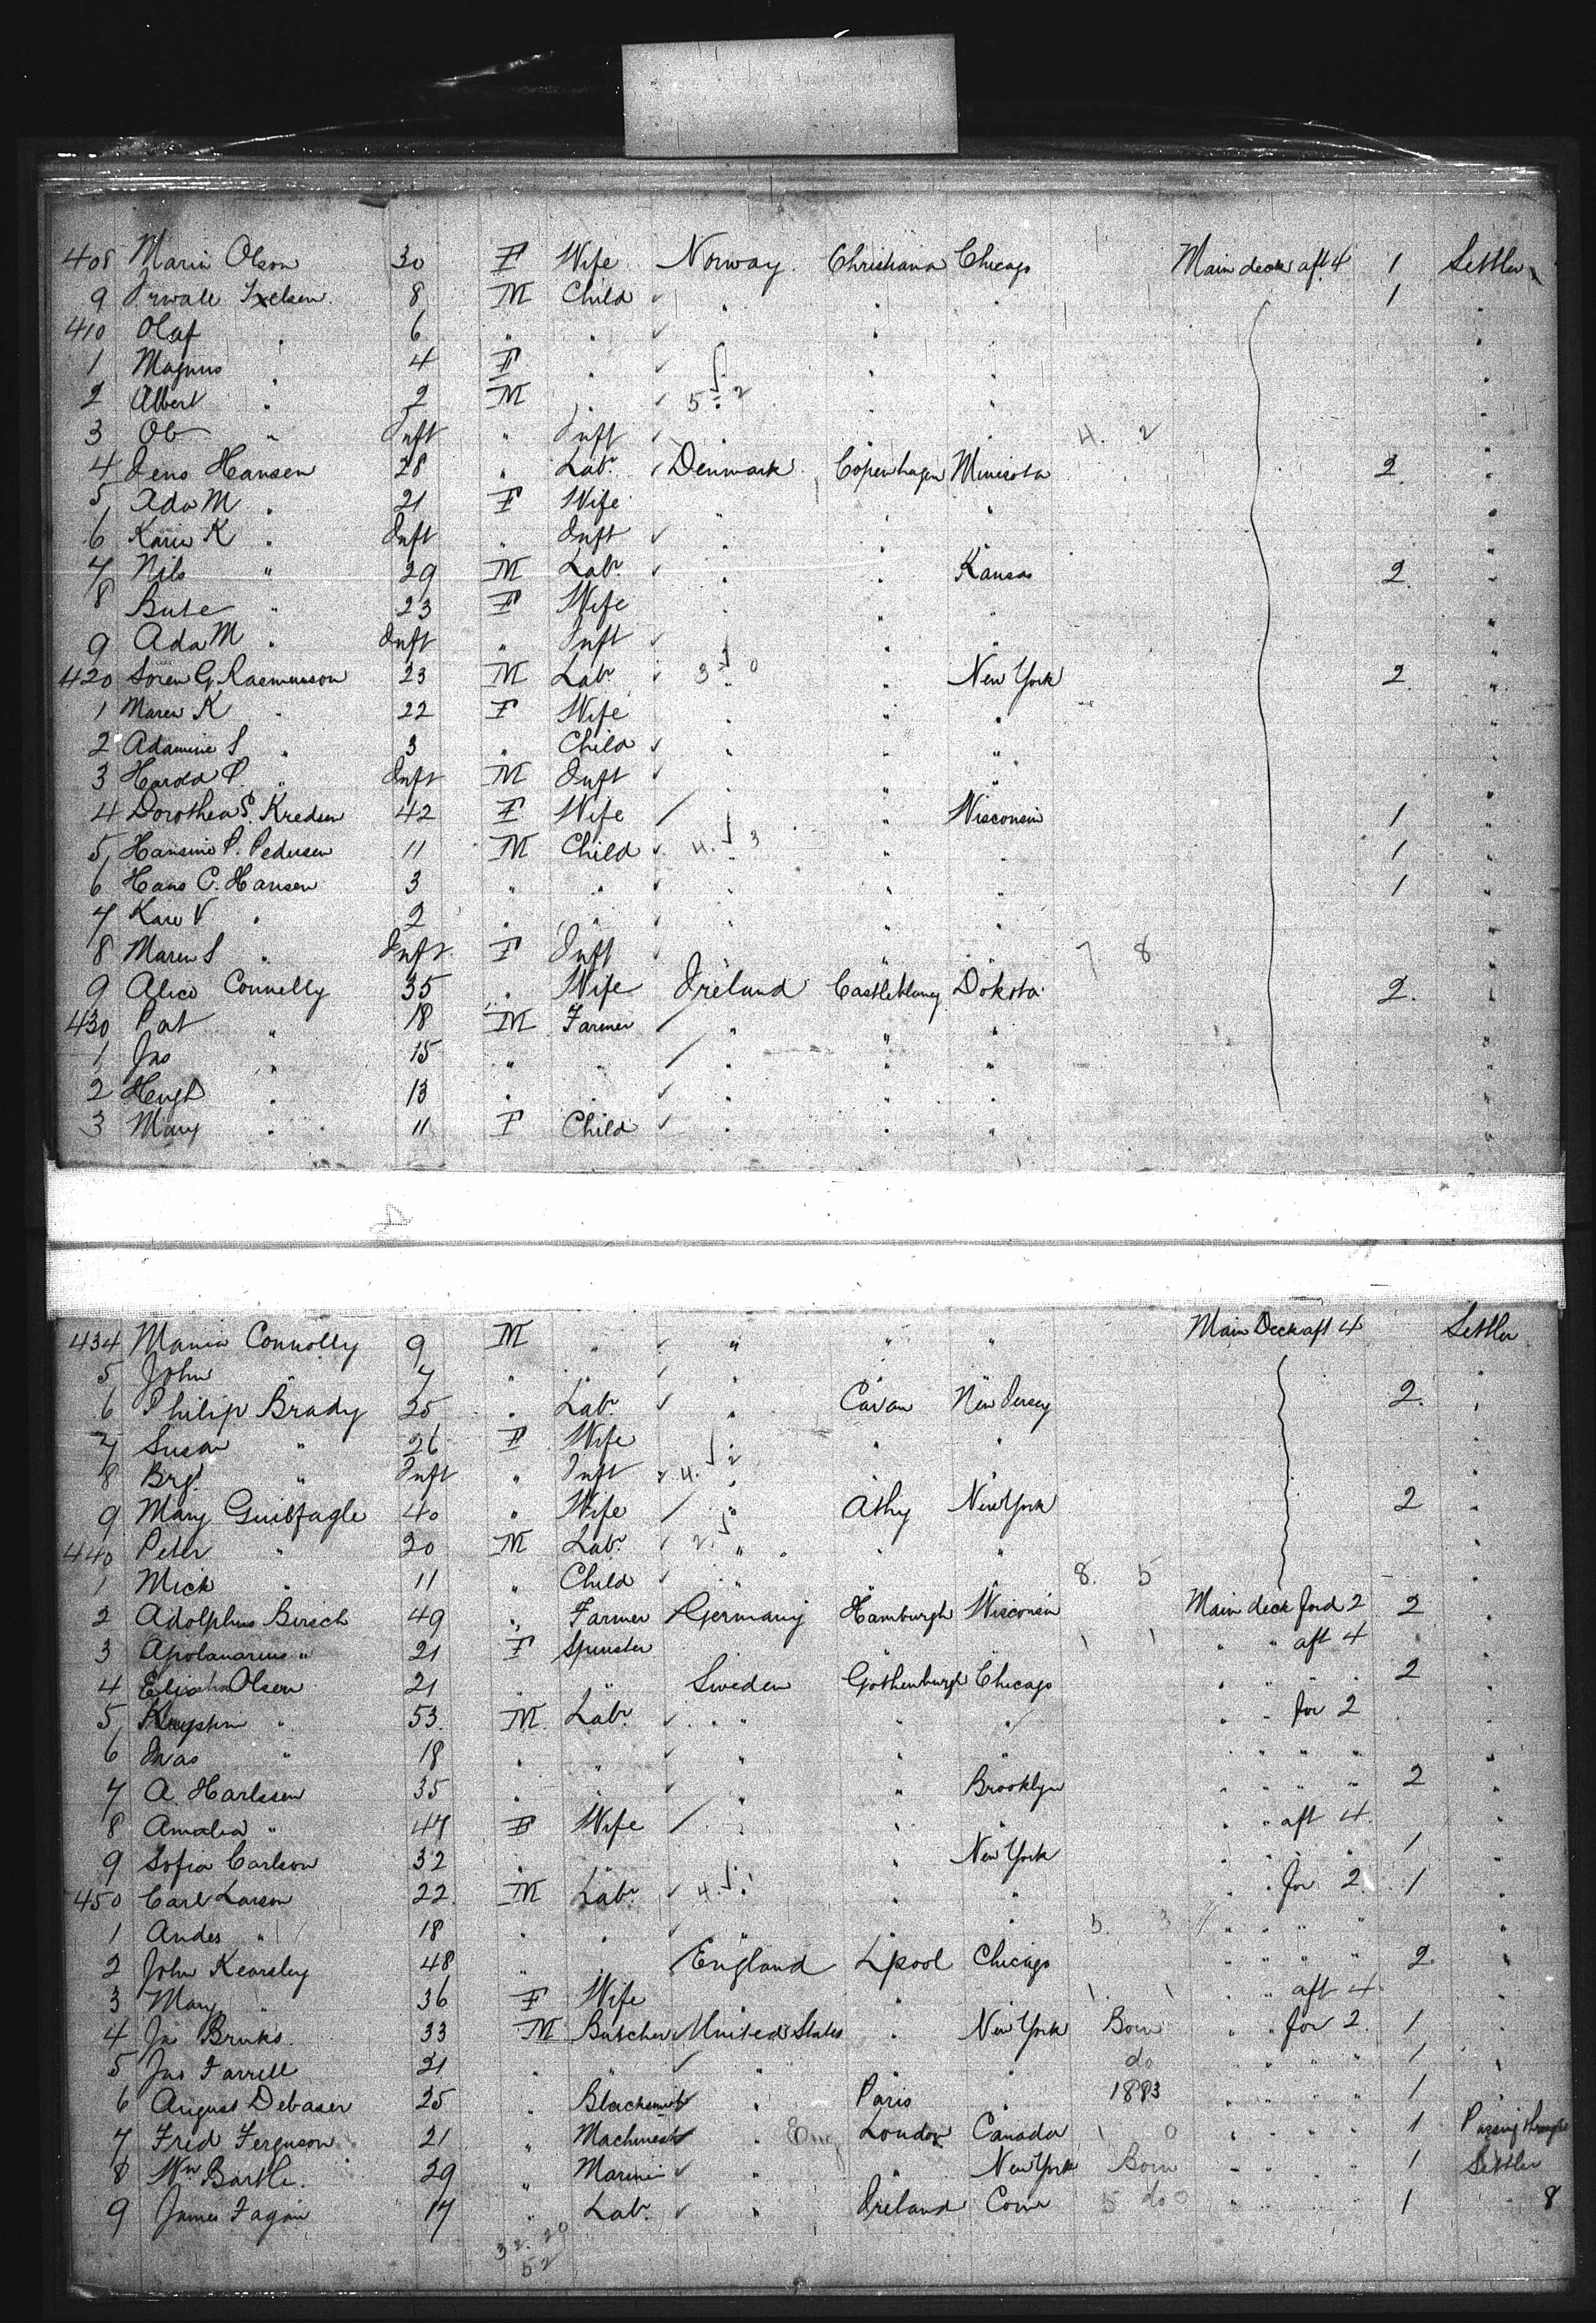 408 Maria Olson 30 F Wife Norway Christiana Chicago Main deck aft 4 1 Settler
9 8 M Child " " " 1 "
410 Olaf " 6 " " " " " "
1 Magnus " 4 F " " " " "
2 Albert " 2 M " 5 2 " " "
3 Ob " Inft " Inft " " " 4. 2 "
4 Jens Hansen 28 " Labr Denmark Copenhagen Minisota 2 "
5 Ada M " 21 F Wife " " " "
6 Karen K " Inft " Inft " " " "
7 Nils " 29 M Labr " " Kansas 2 "
8 " 23 F Wife " " " "
9 Ada M " Inft " Inft " " " "
420 Soren G. Rasmusson 23 M Labr 3 0 " New York 2 "
1 Maren K " 22 F Wife " " " "
2 Adamine S " 3 " Child " " " "
3 Harold P. " Inft M Inft " " " "
4 Dorothea S. Kredsen 42 F Wife " " Wisconsin 1 "
5 Hansine P. Pedersen 11 M Child 4. 3 " " 1 "
6 Hans C. Hansen 3 " " " " " 1 "
7 Kare V " 2 " " " " " "
8 Maren S " Inft F Inft " " " 7 8 "
9 Alice Connelly 35 " Wife Ireland Castleblaney Dokota 2. "
430 Pat " 18 M Farmer " " " "
1 Jas " 15 " " " " " "
2 Hugh " 13 " " " " " "
3 Mary " 11 F Child " " " "
434 Connolly 9 M " " " " Main Deck aft 4 Settler
5 John " 7 " " " " " "
6 Philip Brady 25 " Labr " Cavan New Jersey 2. "
7 Susan " 26 F Wife " " " "
8 Brgt " Inft " Inft 4. 2 " " "
9 Mary 40 " Wife " Athy New York 2 "
440 Peter " 20 M Labr 2. " " " "
1 Mick " 11 " Child " " " 8. 5 "
2 Adolphus Birsch 49 " Farmer Germany Hamburgh Wisconsin Main deck ford 2 2 "
3 Apolanarius " 21 F Spinster 1 1 " " aft 4 "
4 Olsen 21 " " Sweden Gothenburgh Chicago " " " 2 "
5 " 53. M. Labr " " " " " for 2 "
6 " 18 " " " " " " " " " "
7 A. Harlssen 35 " " " " Brooklyn " " " " 2 "
8 Amalia " 47 F Wife " " " " " aft 4 "
9 Sofia Carlson 32 " " " " New York " " " " 1 "
450 Carl Larson 22 M Labr 4. 1 " " " " for 2 1 "
1 Andes " 18 " " " " " 5. 3 " " " " "
2 John Kearsley 48 " " England Lpool Chicago " " " " 2 "
3 Mary " 36 F Wife " " " 1. 1 " " aft 4 "
4 Jn Bruks 33 M Butcher United States " New York Born " " for 2 1 "
5 Jas Farrell 21 " " " " " do " " " " 1 "
6 August Debaser 25 " Blacksmith " Paris " 1883 " " " " 1 "
7 Fred Ferguson 21 " Machinest " Eng London Canada 1 0 " " " " 1 Passing through
8 Wm Bartle 29 " Marine " " New York Born " " " " 1 Settler
9 James Fagan 17 " Labr " Ireland 5 do 0 " " " " 1 " 8
32. 20
52